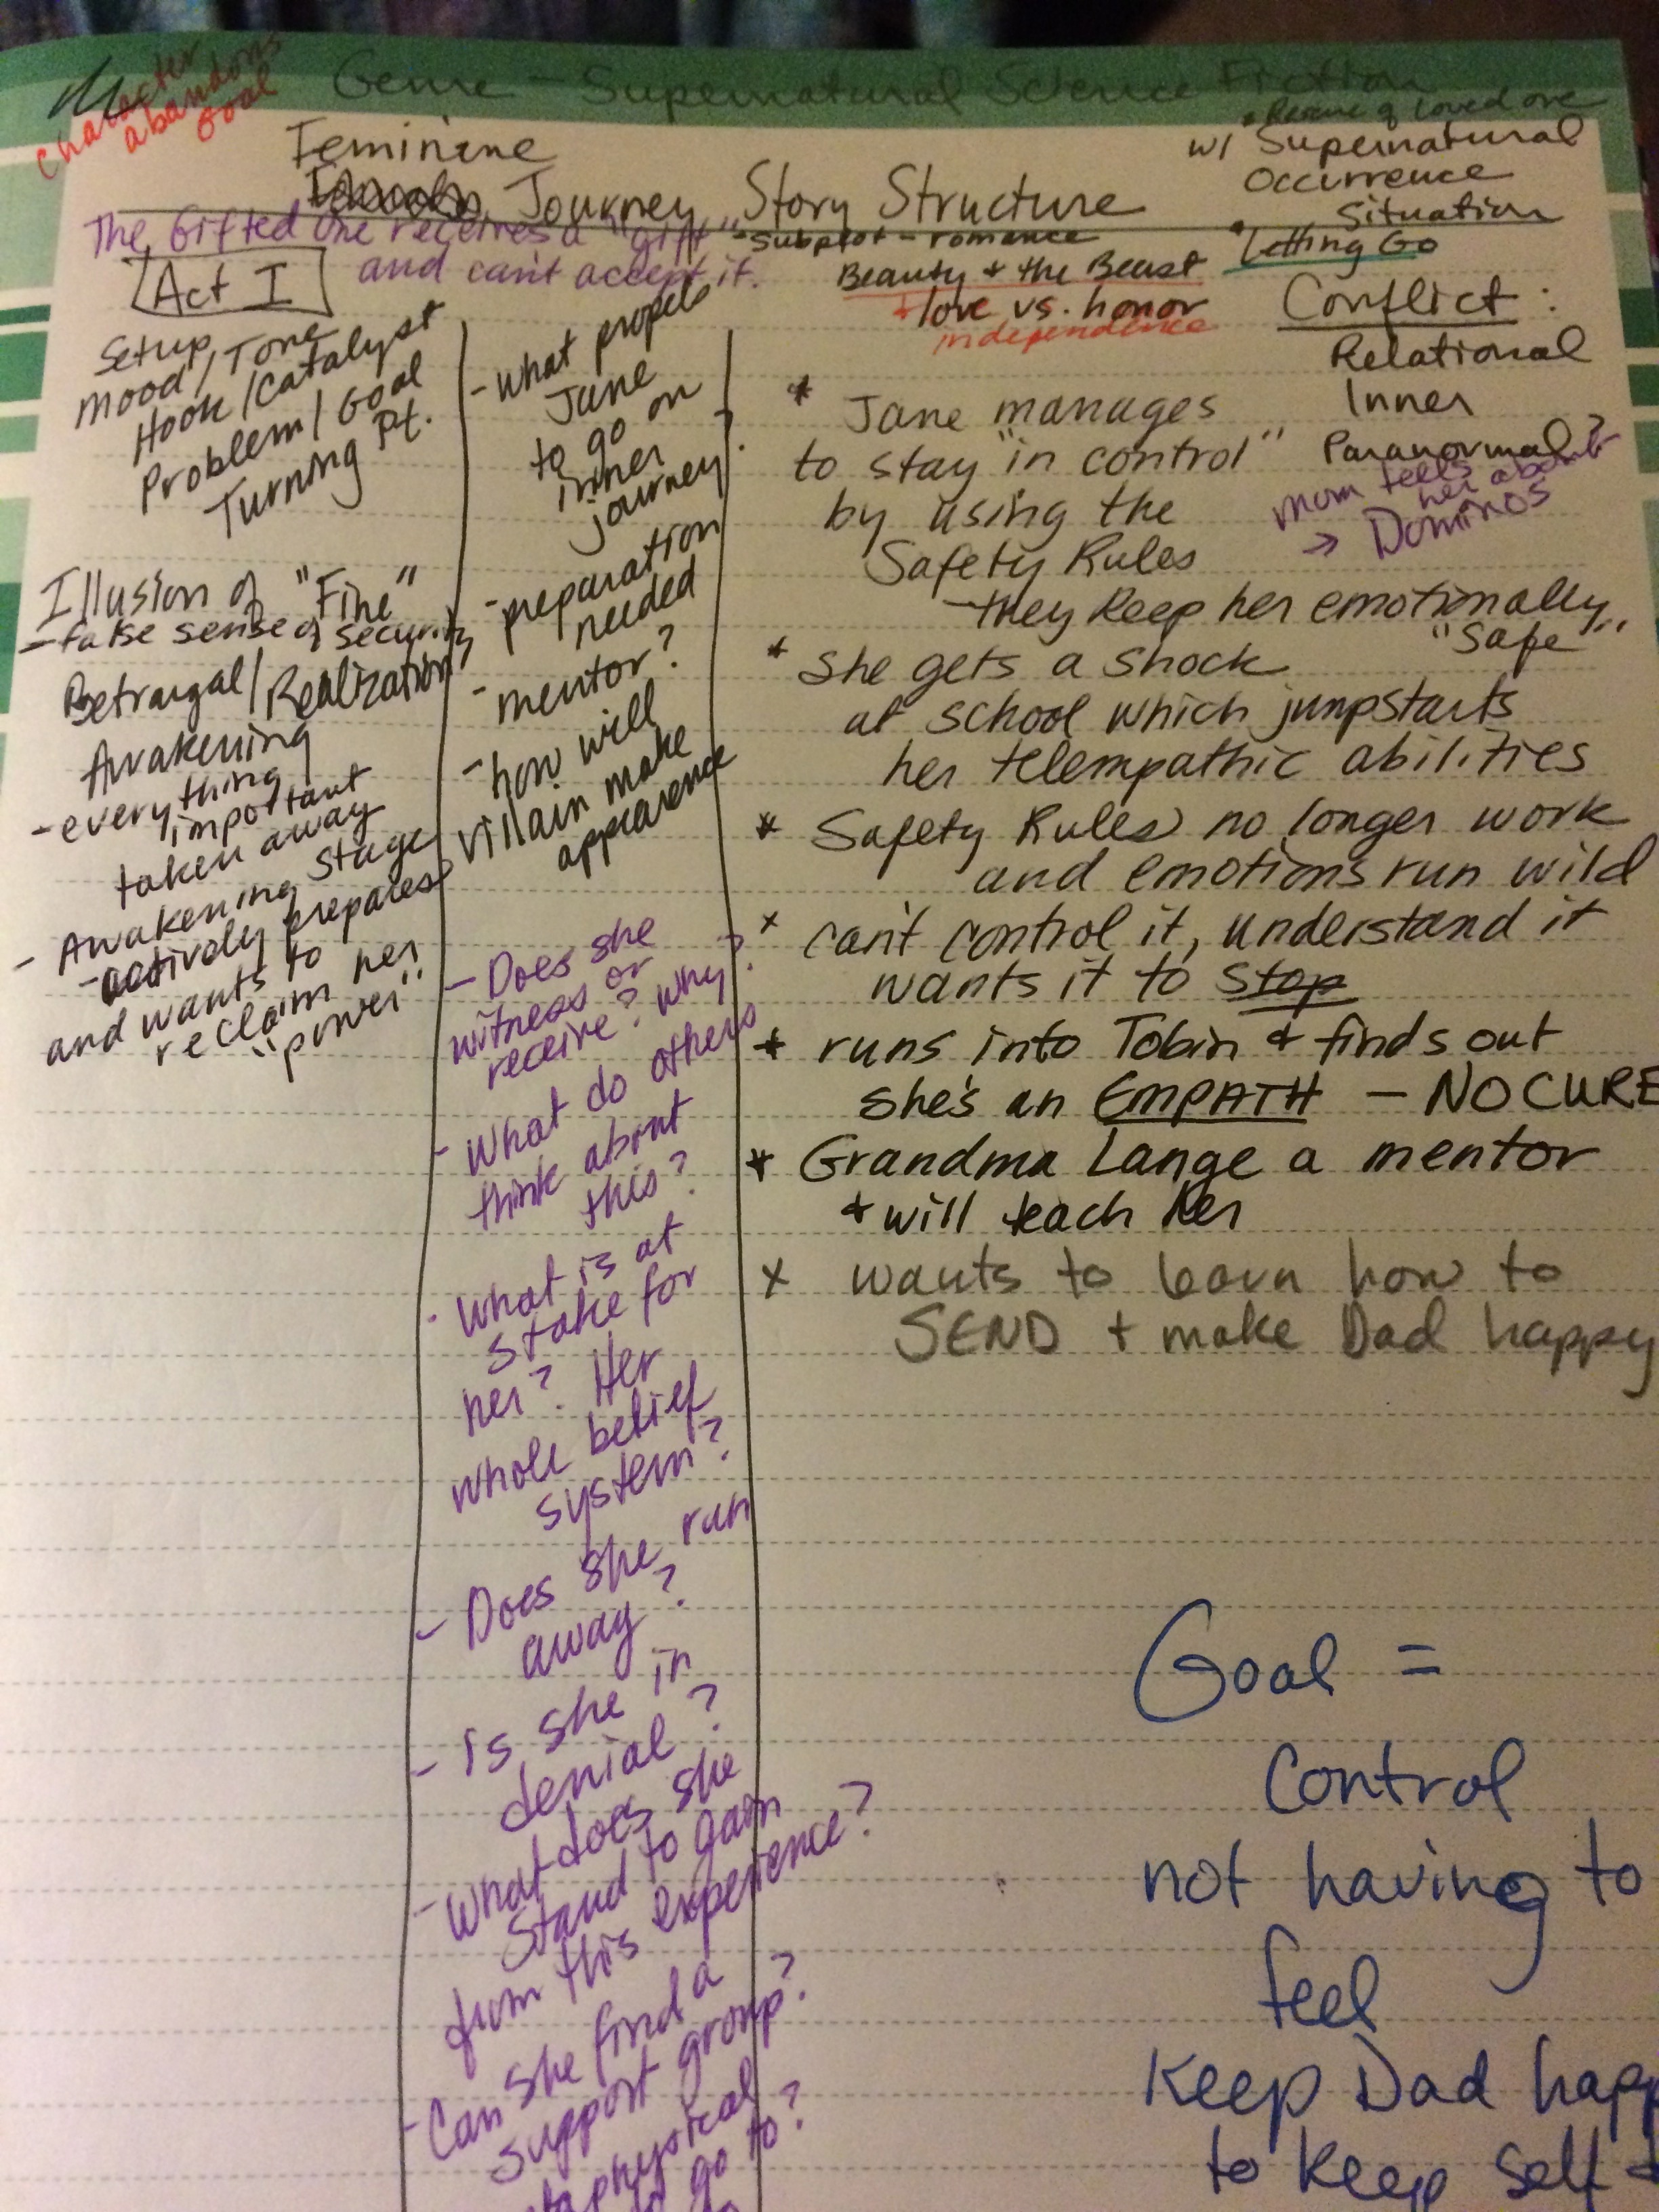 Character
abandons
Goal
Genre - Supernatural Science Fiction
Feminine
Journey Story Structure
* Rescue of loved one
w/ Supernatural
Occurrence
Situation
* Letting Go
The Gifted One receives a "gift"
and can't accept it.
- subplot - romance
Beauty + the Beast
+ love vs. honor
independence
Act I
Setup
Mood / Tone
Hook / Catalyst
Problem / Goal
Turning Pt.
Illusion of "Fine"
- false sense of security
Betrayal / Realization
Awakening
- everything
important
taken away
- Awakening Stage
- actively prepares
and wants to
reclaim her
"power"
- what propels
Jane
to go on
inner
journey?
- preparation
needed
- mentor?
- how will
villain make
appearence
- Does she
witness or
receive? Why?
- What do others
think about
this?
- What is at
stake for
her? Her
whole belief
system?
- Does she run
away?
- Is she in
denial?
- What does she
stand to gain
from this experience?
- Can she find a
support group?
go to?
Conflict:
Relational
Inner
Paranormal?
Mom tells
her about
→ Dominos
* Jane manages
to stay "in control"
by using the
Safety Rules
- they keep her emotionally
"safe"
* She gets a shock
at school which jumpstarts
her telempathic abilities
* Safety Rules no longer work
and emotions run wild
* can't control it, understand it
wants it to stop
* runs into Tobin + finds out
she's an EMPATH - NO CURE
* Grandma Lange a mentor
+ will teach her
x wants to learn how to
SEND + make Dad happy
Goal =
Control
not having to
feel
Keep Dad
to keep self